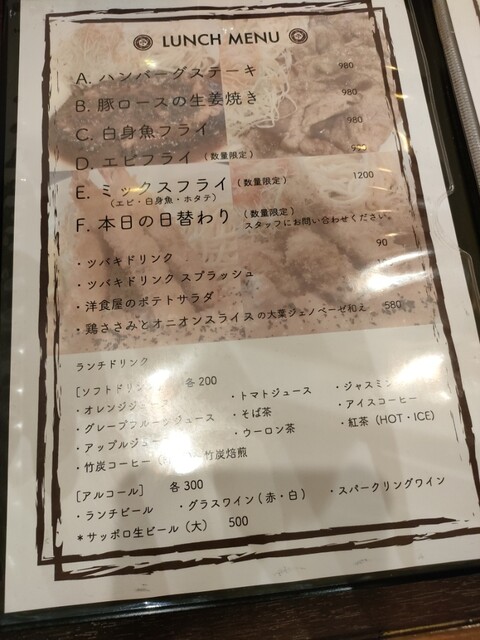 LUNCH MENU
A. ハンバーグステーキ 980
B. 豚ロースの生姜焼き 980
C. 白身魚フライ 980
D. エビフライ (数量限定)
E. ミックスフライ (数量限定) 1200
(エビ・白身魚・ホタテ)
F. 本日の日替わり (数量限定)
スタッフにお問い合わせください。
・ツバキドリンク 90
・ツバキドリンク スプラッシュ
・洋食屋のポテトサラダ
・鶏ささみとオニオンスライスの大葉ジェノベーゼ和え 580
ランチドリンク
[ソフトドリンク 各200
・オレンジジュース ・トマトジュース ・ジャスミン
・グレープフルーツジュース ・そば茶 ・アイスコーヒー
・アップルジュース ・ウーロン茶 ・紅茶 (HOT・ICE)
・竹炭コーヒー 竹炭焙煎
[アルコール] 各300
・ランチビール ・グラスワイン (赤・白) ・スパークリングワイン
*サッポロ生ビール (大) 500